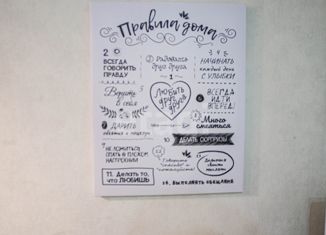 Правила дома
2
ВСЕГДА
ГОВОРИТЬ
ПРАВДУ
Радоваться
друг другу
1
3 4 5
НАЧИНАТЬ
каждый день
С УЛЫБКИ
Верить
в себя
Любить
друг
друга
ВСЕГДА
ИДТИ
ВПЕРЕД!
ДАРИТЬ
Много
смеяться
10
ДЕЛАТЬ СЮРПРИЗЫ
НЕ ЛОЖИТЬСЯ
СПАТЬ В ПЛОХОМ
НАСТРОЕНИИ
12
Говорить
"спасибо" и
"пожалуйста!"
Делиться
своими
11. Делать то,
что ЛЮБИШЬ
ВЫПОЛНЯТЬ ОБЕЩАНИЯ